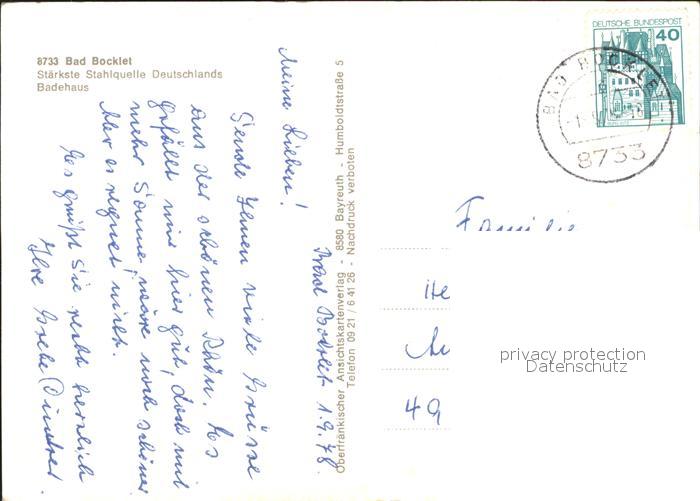 8733 Bad Bocklet
Stärkste Stahlquelle Deutschlands
Badehaus
Bad Bocklet 1.9.78.
Meine Lieben!
Sende Ihnen viele Grüsse
aus der schönen Rhön. Es
gefällt mir hier gut, doch mit
mehr Sonne wäre noch schöner
Aber es regnet nicht.
Es grüßt Sie recht herzlich
Ihre Grete
Oberfränkischer Ansichtskartenverlag - 8580 Bayreuth - Humboldtstraße 5
Telefon 09 21 / 6 41 26 - Nachdruck verboten
DEUTSCHE BUNDESPOST
40
BAD BOCKLET
8733
Familie
49
privacy protection
Datenschutz